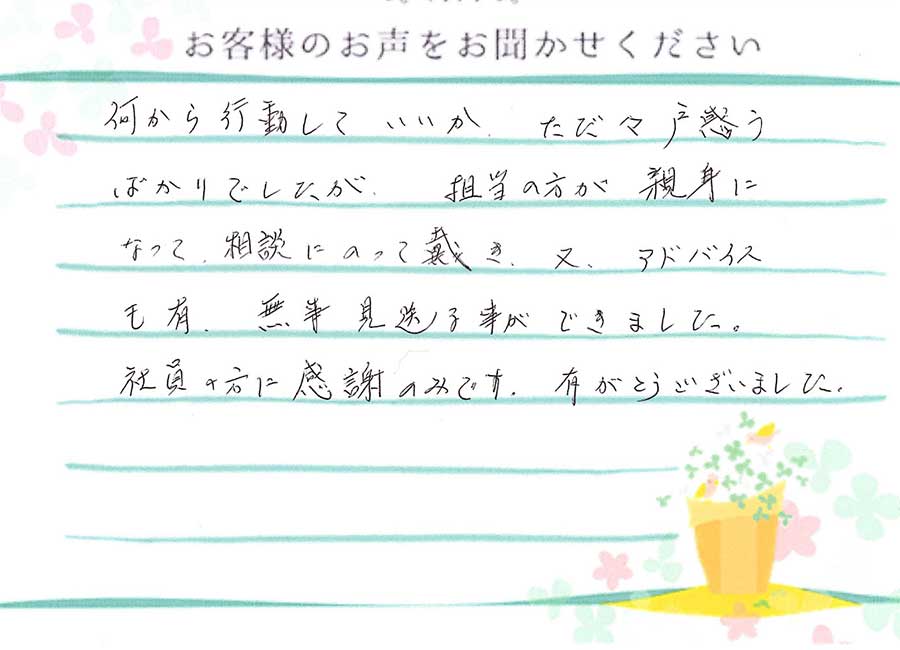 お客様のお声をお聞かせください
何から行動して いいか、ただ々戸惑う
ばかりでしたが、 担当の方が 親身に
なって、相談にのって戴き、又、アドバイス
も有、無事見送る事ができました。
社員の方に感謝のみです。有がとうございました。